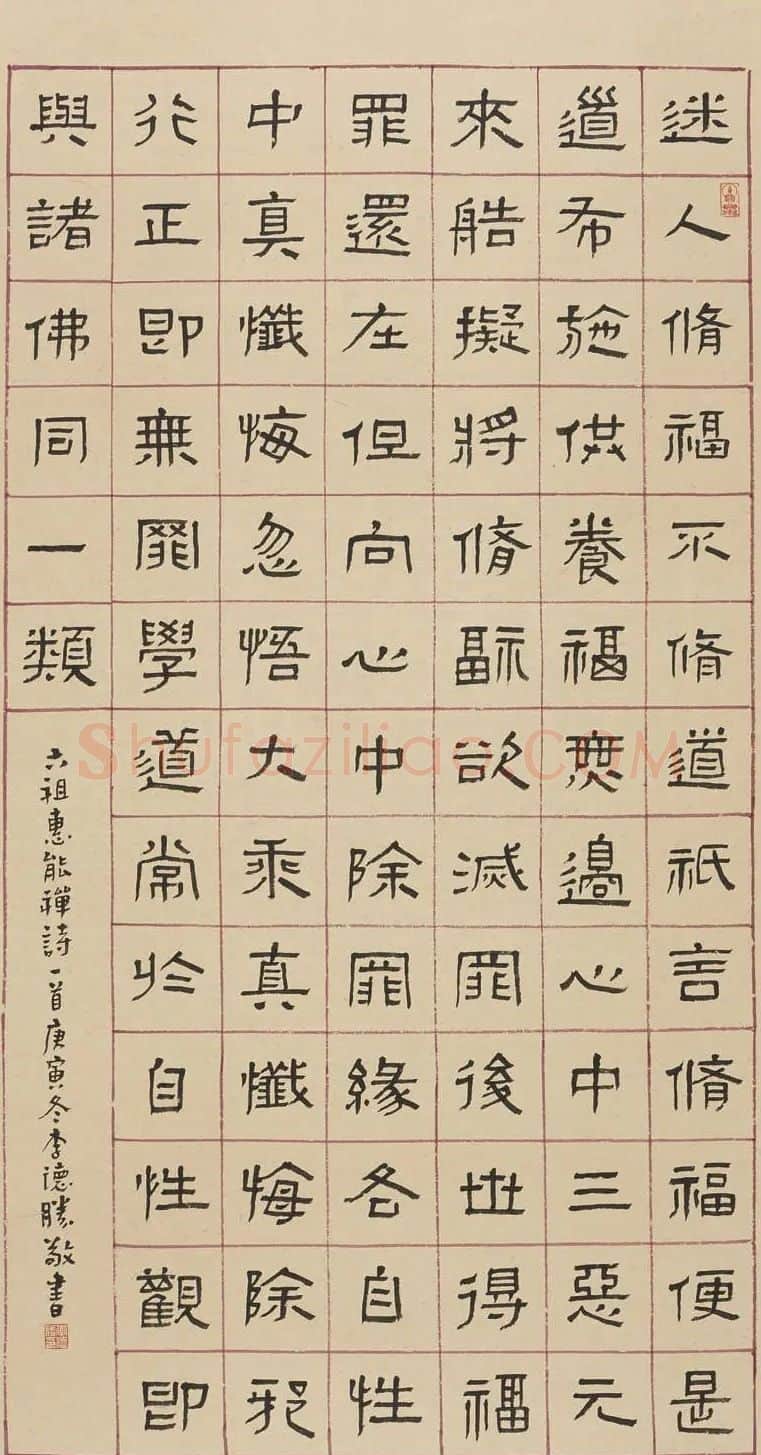 迷人脩福不脩道祇言脩福便是
道布施供養福無邊心中三惡元
來造擬將脩福欲滅罪後世得福
罪還在但向心中除罪緣各自性
中真懺悔忽悟大乘真懺悔除邪
行正即無罪學道常於自性觀即
與諸佛同一類
六祖惠能禪詩一首庚寅冬李德勝敬書
Shufaziliao.COM